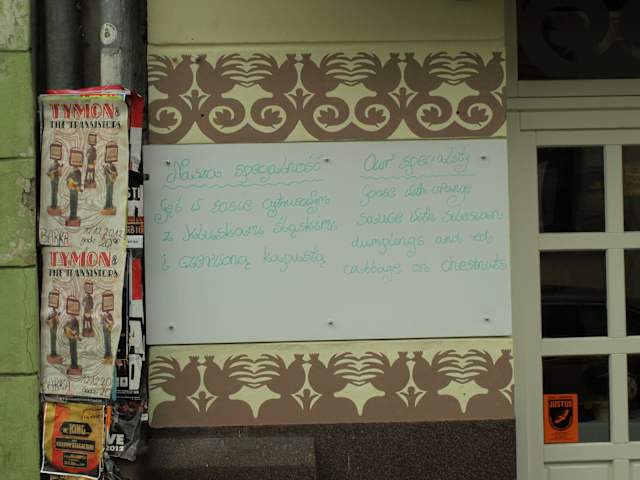 TYMON &
THE TRANSISTORS
BARKA
12.12.2012
TYMON &
THE TRANSISTORS
BARKA
12.12.20
KING
LIVE
2012
Nasza specjalność
Gęś w sosie cytrusowym
z kluskami śląskimi
i czerwoną kapustą
Our speciality
Goose with orange
sauce with silesians
dumplings and red
cabbage on chestnuts
JUSTUS